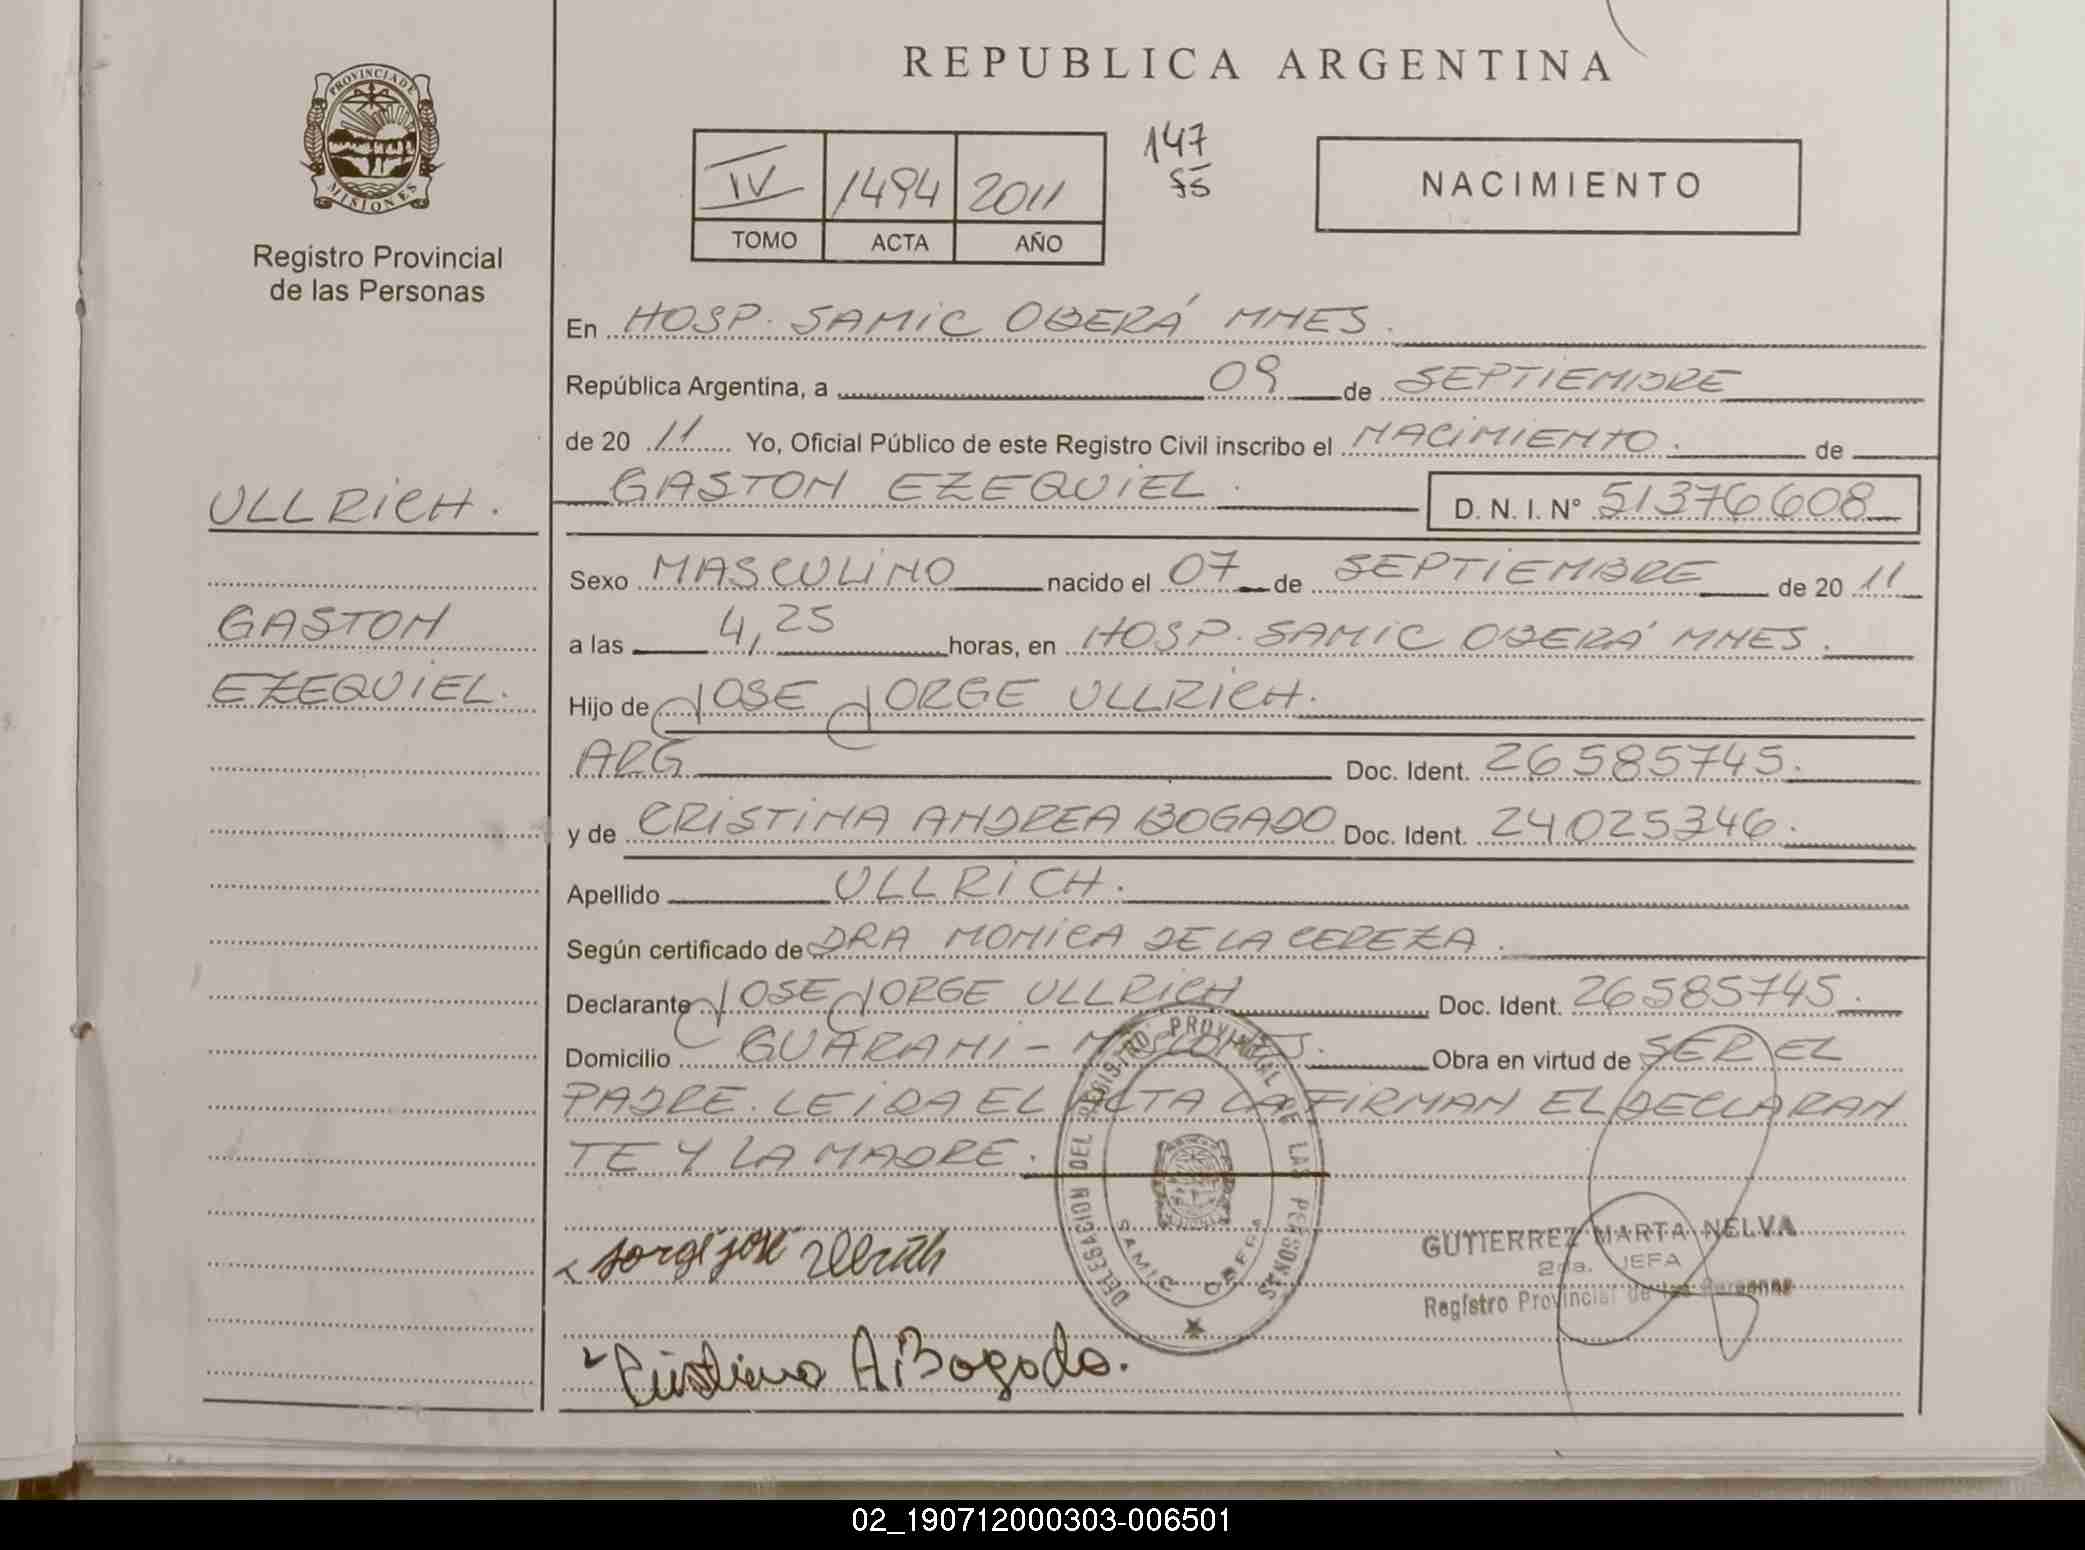 REPUBLICA ARGENTINA
PROVINCIA DE
MISIONES
Registro Provincial
de las Personas
IV 1494 2011
TOMO ACTA AÑO
147
fs
NACIMIENTO
En HOSP. SAMIC OBERÁ MNES.
República Argentina, a 09 de SEPTIEMBRE
de 20 11 Yo, Oficial Público de este Registro Civil inscribo el NACIMIENTO. de
GASTON EZEQUIEL. D. N. I. N° 51376608
ULLRICH.
GASTON
EZEQUIEL.
Sexo MASCULINO nacido el 07 de SEPTIEMBRE de 20 11
a las 4,25 horas, en HOSP. SAMIC OBERÁ MNES.
Hijo de JOSE JORGE ULLRICH.
ARG Doc. Ident. 26585745.
y de CRISTINA ANDREA BOGADO Doc. Ident. 24025346.
Apellido ULLRICH.
Según certificado de DRA MONICA DE LA CEREZA.
Declarante JOSE JORGE ULLRICH Doc. Ident. 26585745.
Domicilio GUARANI - MISIONES. Obra en virtud de SER EL
PADRE. LEIDA EL ACTA LA FIRMAN EL DECLARAN
TE Y LA MADRE.
DELEGACION DEL REGISTRO PROVINCIAL DE LAS PERSONAS
SAMIC OBERA
Jorge José Ullrich
Cristina A. Bogado.
GUTIERREZ MARTA NELVA
2da. JEFA
Registro Provincial de las Personas
02_190712000303-006501